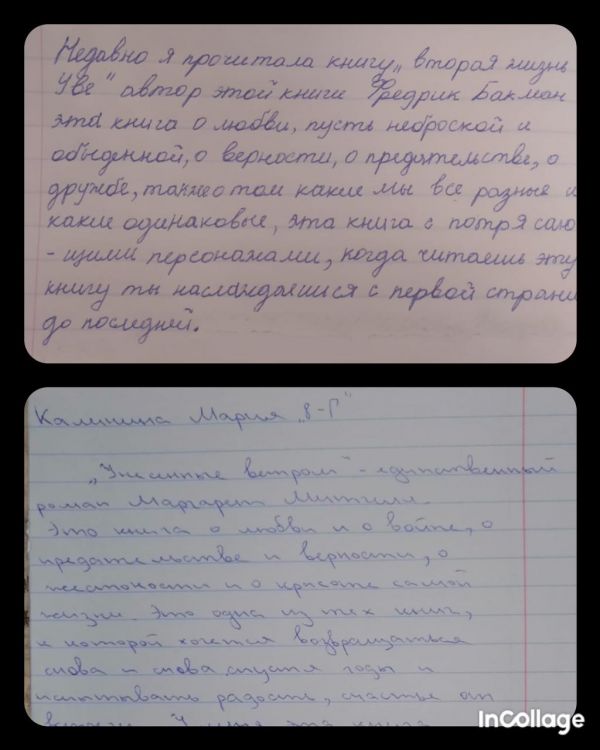 Недавно я прочитала книгу „вторая жизнь
Уве" автор этой книги Фредрик Бакман
эта книга о любви, пусть неброской и
обыденной, о верности, о предательстве, о
дружбе, также о том какие мы все разные и
какие одинаковые, эта книга с потрясаю
-щими персонажами, когда читаешь эту
книгу ты наслаждаешися с первой страни
до последней.
Калинина Мария „8-Г"
„Унесенные ветром" - единственный
роман Маргарет Митчелл.
Это книга о любви и о войне, о
предательстве и верности, о
жестокости и о красоте самой
жизни. Это одна из тех книг,
к которой хочется возвращаться
снова и снова, спустя годы и
испытывать радость, счастье от
эта книга
InCollage